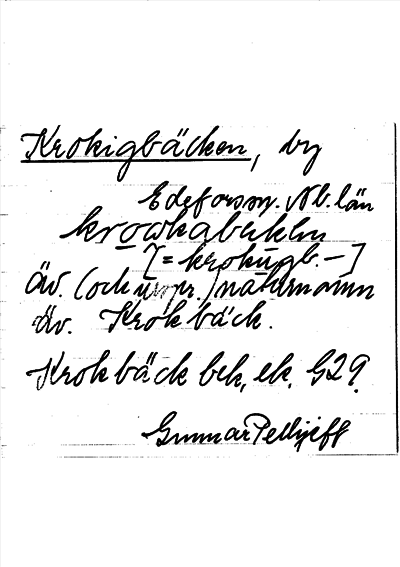 Krokigbäcken, by
Edeforssn. Nb. län
krowkabäkkln
[= krokugb. –]
äv. (och urspr.) naturnamn
äv. Krokbäck.
Krokbäck bek, ek. G29.
Gunnar Pellijeff